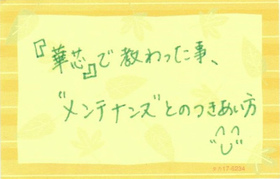 『華芯』で教わった事、
〝メンテナンス〟とのつきあい方